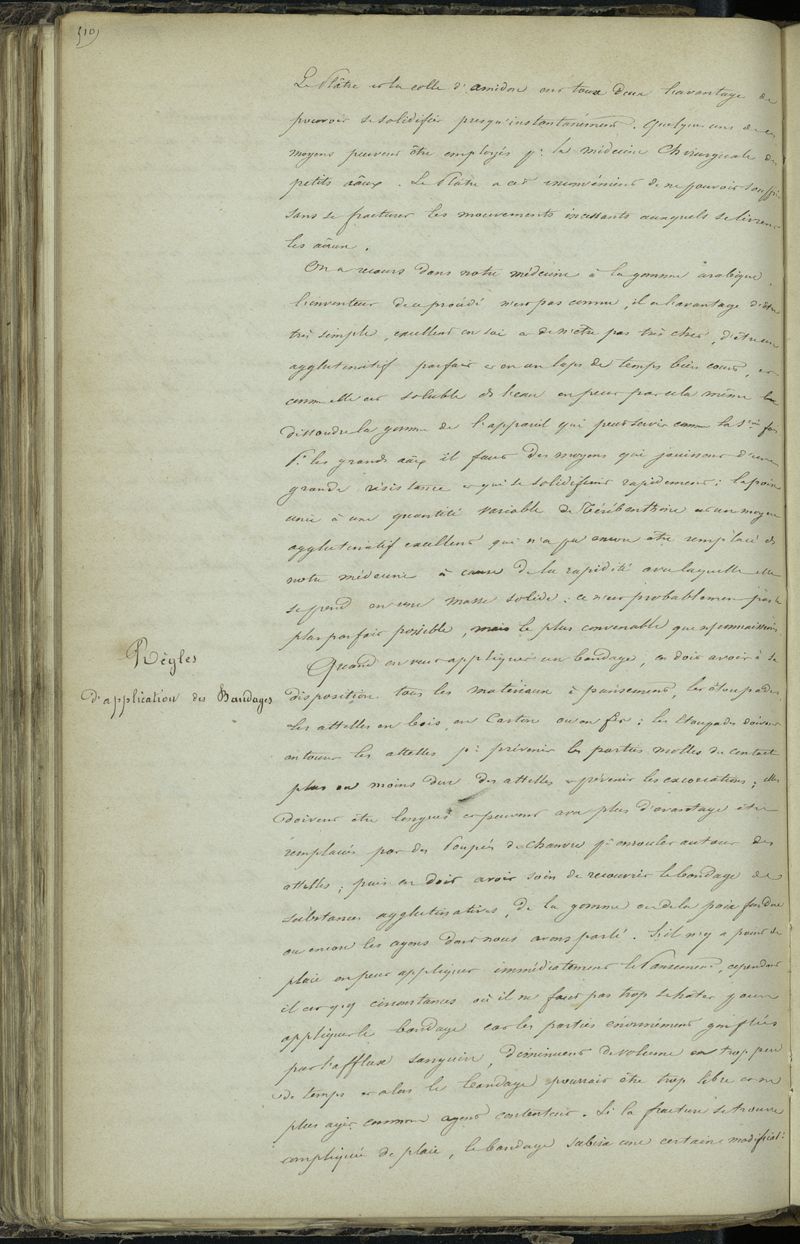 510
Le Plâtre et la colle d'amidon ont tous deux l'avantage de
pouvoir se solidifier presqu'instantanément. Quelques uns de ces
moyens peuvent être employés pr la médecine chirurgicale des
petits aâux. Le Plâtre a cet inconvénient de ne pouvoir souffrir
sans se fracturer les mouvements incessants auxquels se livrent
les aâux.
On a recours dans notre médecine à la gomme arabique.
L'inventeur de ce procédé n'est pas connu, il a l'avantage d'être
très simple, excellent en soi et de n'être pas très cher, d'être un
agglutinatif parfait et en un laps de temps bien court, et
comme elle est soluble ds l'eau on peut par cela même
dissoudre la gomme de l'appareil qui peut servir comme la fois
Pr les grands aâux il faut des moyens qui jouissent d'une
grande résistance et qui se solidifient rapidement: la poix
unie à une quantité variable de Térébenthine est un moyen
agglutinatif excellent qui n'a pu encore être remplacé ds
notre médecine à cause de la rapidité avec laquelle elle
se prend en une masse solide: ce n'est probablement pas le
plus parfait possible, mais le plus convenable que ns connaissions
Règles
d'application des Bandages
Quand on veut appliquer un bandage, on doit avoir à sa
disposition tous les matériaux à pansement, les étoupades,
les attelles en bois, en Carton ou en fer: les étoupades doivent
entourer les attelles pr prévenir les parties molles du contact
plus ou moins dur des attelles et prévenir les excoriations; elles
doivent être longues et peuvent avec plus d'avantage être
remplacées par des Poupées de chanvre qu'on roule autour des
attelles; puis on doit avoir soin de recouvrir le bandage de
substances agglutinatives, de la gomme ou de la poix fondue
ou encore les agents dont nous avons parlé. S'il n'y a point de
plaie on peut appliquer immédiatement le Pansement, cependant
il est qq circonstances où il ne faut pas trop se hâter
appliquer le bandage car les parties énormément gonflées
par l'afflux sanguin, diminuent de volume en trop peu
de temps et alors le bandage pourrait être trop libre et ne
plus agir comme agent contentif. Si la fracture se trouve
compliquée de plaie, le bandage subira une certaine modificat: